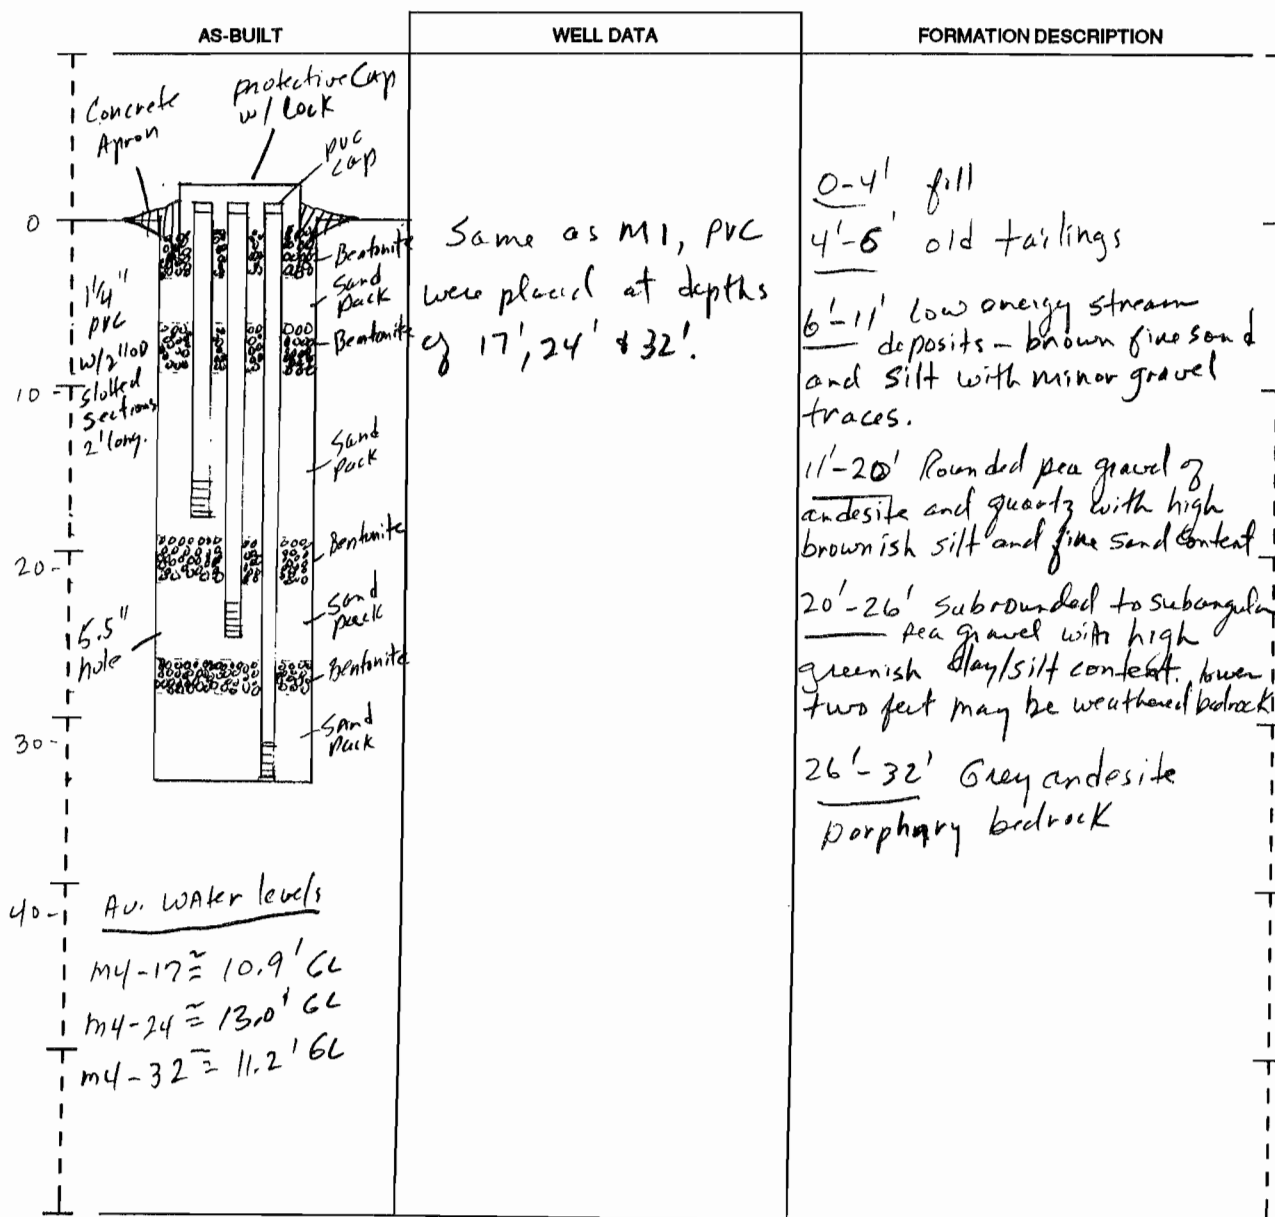 AS-BUILT
WELL DATA
FORMATION DESCRIPTION
Concrete
Apron
protective Cap
w/ Lock
PVC
Cap
0
10
20
30
40
1 1/4"
PVC
w/2" OD
slotted
sections
2' long.
5.5"
hole
Bentonite
Sand
pack
Bentonite
Sand
pack
Bentonite
Sand
pack
Bentonite
Sand
pack
Av. Water levels
M4-17 ≅ 10.9' GL
M4-24 ≅ 13.0' GL
M4-32 ≅ 11.2' GL
Same as M1, PVC
were placed at depths
of 17', 24' & 32'.
0-4' fill
4'-6' old tailings
6'-11' Low energy stream
deposits - brown fine sand
and silt with minor gravel
traces.
11'-20' Rounded pea gravel of
andesite and quartz with high
brownish silt and fine sand content
20'-26' Subrounded to subangular
pea gravel with high
greenish clay/silt content. lower
two feet may be weathered bedrock
26'-32' Grey andesite
porphyry bedrock